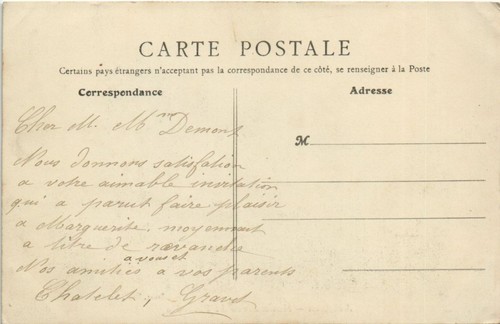 CARTE POSTALE
Certains pays étrangers n'acceptant pas la correspondance de ce côté, se renseigner à la Poste
Correspondance
Adresse
Cher M. Mme Demont
Nous donnons satisfation
a votre aimable invitation
qui a parut faire plaisir
a Marguerite, moyennant
a titre de revanche
a vous et
Nos amitiés a vos parents
Chatelet, Gravet
M